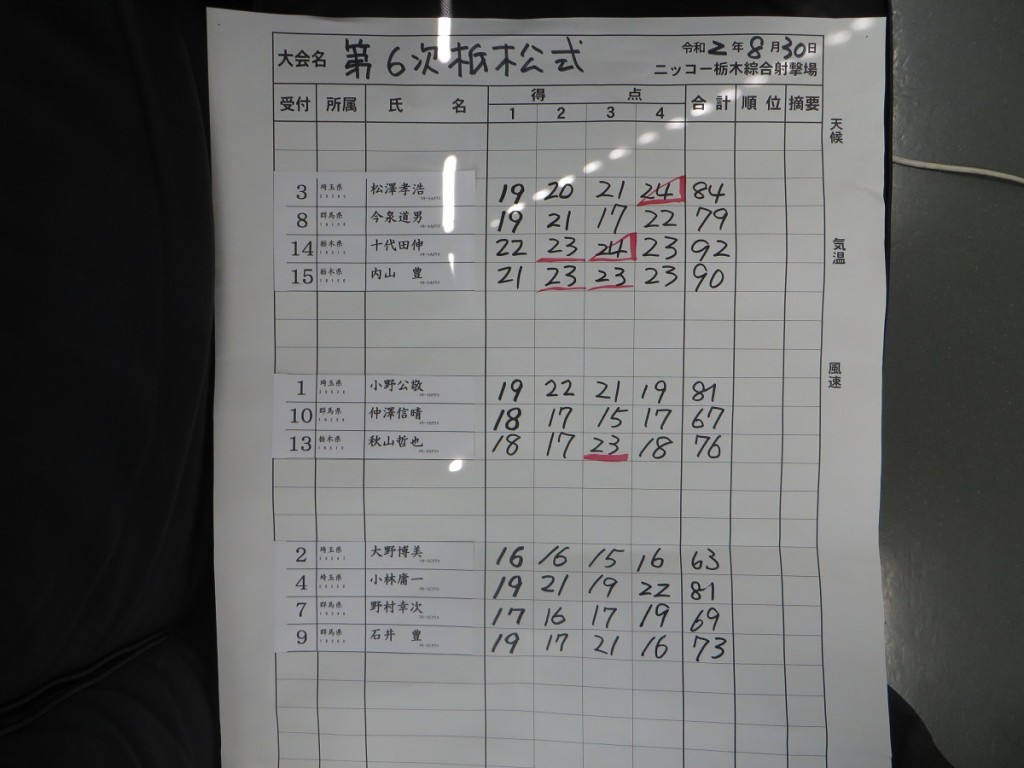 大会名 第6次栃松式 令和2年8月30日
ニッコー栃木綜合射撃場
受付 所属 氏名 得点 合計 順位 摘要
1 2 3 4
天候
3 埼玉県 松澤孝浩 19 20 21 24 84
8 群馬県 今泉道男 19 21 17 22 79
14 栃木県 十代田伸 22 23 24 23 92
気温
15 栃木県 内山 豊 21 23 23 23 90
風速
1 埼玉県 小野公敬 19 22 21 19 81
10 群馬県 仲澤信晴 18 17 15 17 67
13 栃木県 秋山哲也 18 17 23 18 76
2 埼玉県 大野博美 16 16 15 16 63
4 埼玉県 小林庸一 19 21 19 22 81
7 群馬県 野村幸次 17 16 17 19 69
9 群馬県 石井 豊 19 17 21 16 73